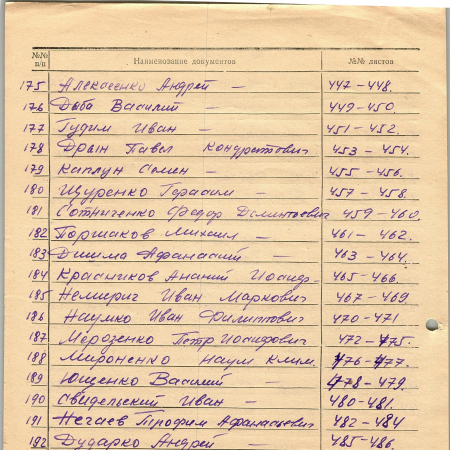 №№ п/п Наименование документов №№ листов
175 Алексеенко Андрей — 447-448.
176 Дыба Василий — 449-450.
177 Гудим Иван — 451-452.
178 Дрын Павел Кондратович 453-454.
179 Каплун Семен — 455-456.
180 Щуренко Герасим — 457-458.
181 Сотниченко Федор Дементьевич 459-460.
182 Поршаков Михаил — 461-462.
183 Дишма Афанасий — 463-464.
184 Красников Ананий Иосиф- 465-466.
185 Немирич Иван Маркович 467-469
186 Наумко Иван Филиппович 470-471
187 Мерозенко Петр Иосифович 472-475.
188 Мироненко Наум Клим. 476-477.
189 Ющенко Василий — 478-479.
190 Свидельский Иван — 480-481.
191 Нечаев Трофим Афанасьевич 482-484
192 Дударко Андрей — 485-486.